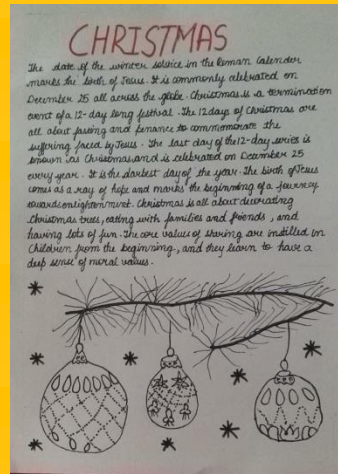 CHRISTMAS
The date of the winter solstice in the Roman Calender
marks the birth of Jesus. It is commonly celebrated on
December 25 all across the globe. Christmas is a termination
event of a 12-day long festival. The 12 days of Christmas are
all about fasing and penance to commomorate the
suffering faced by Jesus. The last day of the 12-day series is
known as Christmas and is celebrated on December 25
every year. It is the darkest day of the year. The birth of Jesus
comes as a ray of hope and marks the beginning of a journey
towards enlightenment. Christmas is all about decorating
Christmas trees, eating with families and friends, and
having lots of fun. The core values of sharing are instilled in
Children from the beginning, and they learn to have a
deep sense of moral values.